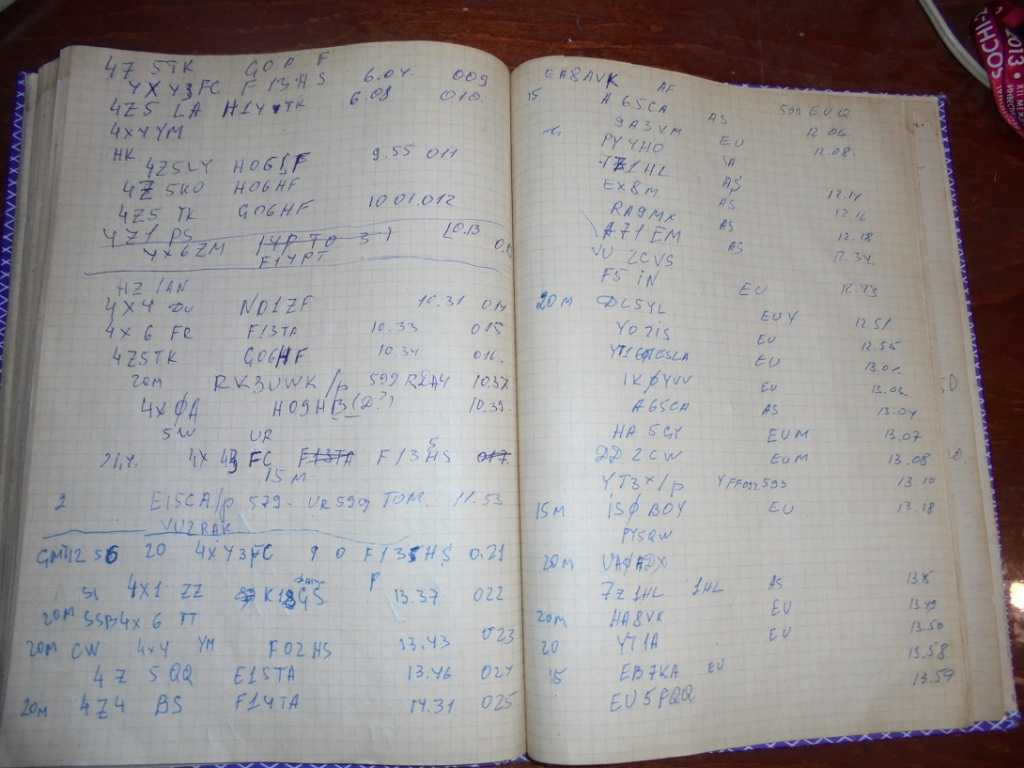 4Z 5TK G0 F
4X43FC F13HS 6.04 009
4Z5 LA H14TK 6.09 010
4X4YM
HK
4Z5LY H06 F 9.55 011
4Z 5KO H06HF
4Z5 TK G06HF 10 01.012
4Z1 PS 10.13
4X6ZM 14PTO 31
F14PT
HZ1AN
4X4 DU N01ZF 10.31 014
4X6 FR F13TA 10.33 015
4Z5TK G06HF 10.34 016.
20m RK3UWK/p 599 10.37
4XØA H09HB(D?) 10.39.
5W UR
21,4. 4X 43 FC F13TA F13HS 017
15 M
2 EI5CA/p 579- UR 599 TOM. 11.53
VU2RAK
20 4X43FC F13HS 0.21
4X1 ZZ GS 13.37 022
20M SSB 4X6 TT
20M CW 4X4 YM F02HS 13.43 023
4Z 5QQ E15TA 13.46 024
20M 4Z4 BS F14TA 14.31 025
EA8AVK AF
15 A65CA AS 599 EU Q
9A3VM EU 12.06
PY4HO SA 12.08.
7Z1HL AS
EX8M AS 12.14
RA9MX AS 12.16
A71EM AS 12.18
VU2CVS 12.34.
F5IN EU 12.43
20M DL5YL EU Y 12.51
YO2IS EU 12.55
EU 13.01
IKØYVV EU 13.02
A65CA AS 13.04
HA5GY EU M 13.07
DD2CW EU M 13.08
YT3X/p YFF 599 13.10
15M ISØBOY EU 13.18
PY5QW
20M UA1ADX
7Z1HL 1HL AS
20M HA8VK EU 13.49
20 YT1A EU 13.50
15 EB7KA EU 13.58
EU5PQQ 13.59
2013
SOCHI